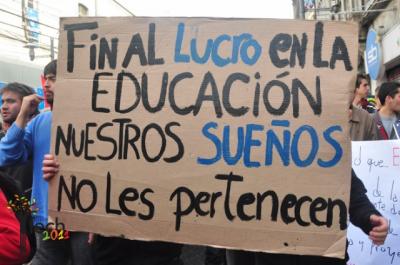 FINAL LUCRO EN LA
EDUCACIÓN
NUESTROS SUEÑOS
NO LES PERTENECEN
2011